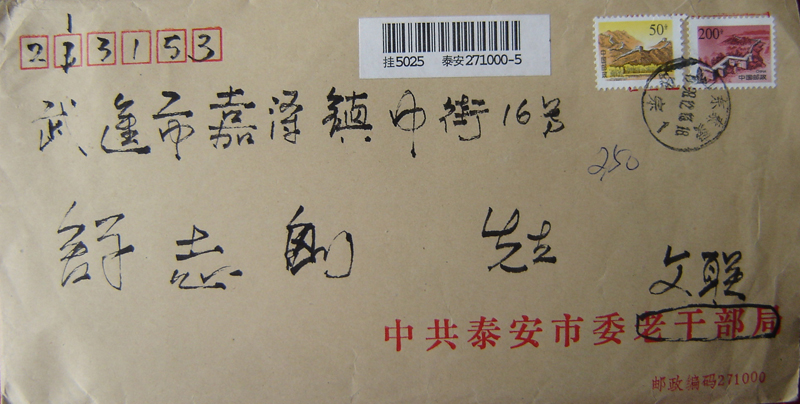 213153
挂5025 泰安271000-5
50分
200分
中国邮政
武進市嘉泽鎮中街16号
2,50
舒志刚 先生
文联
中共泰安市委老干部局
邮政编码271000